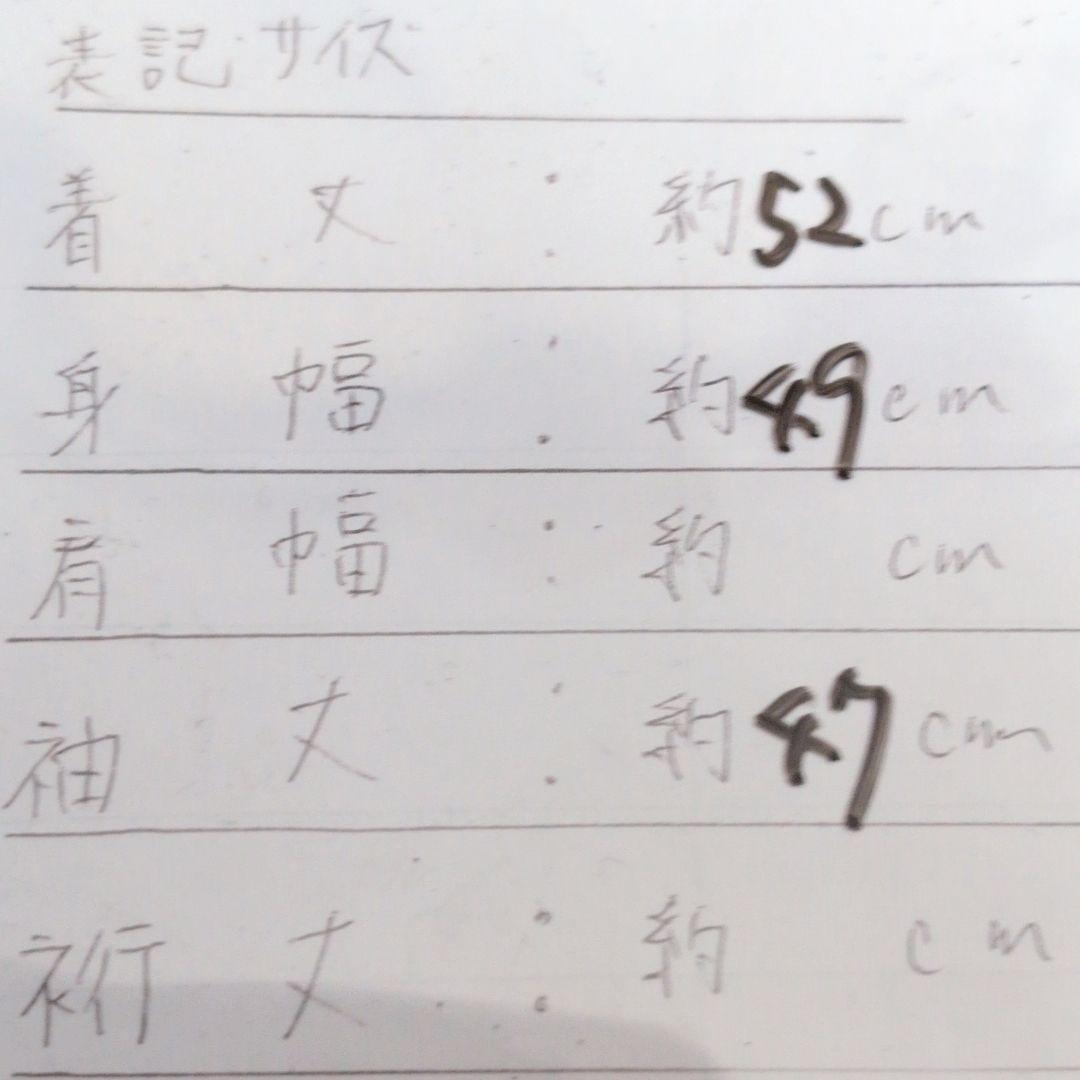 表記サイズ
着丈：約52cm
身幅：約49cm
肩幅：約 cm
袖丈：約47cm
裄丈：約 cm